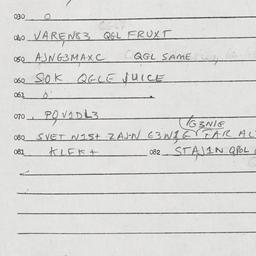 030 O
040 VARENG3 QGL FRUXT
050 AJNG3MAXC QGL SAME
060 SOK QGLE JUICE
061
070 PQV1DL3
G3N1G
080 SVET N15+ ZAJN G3N1G FAR AL
081 KLEK+ 082 STAJ1N